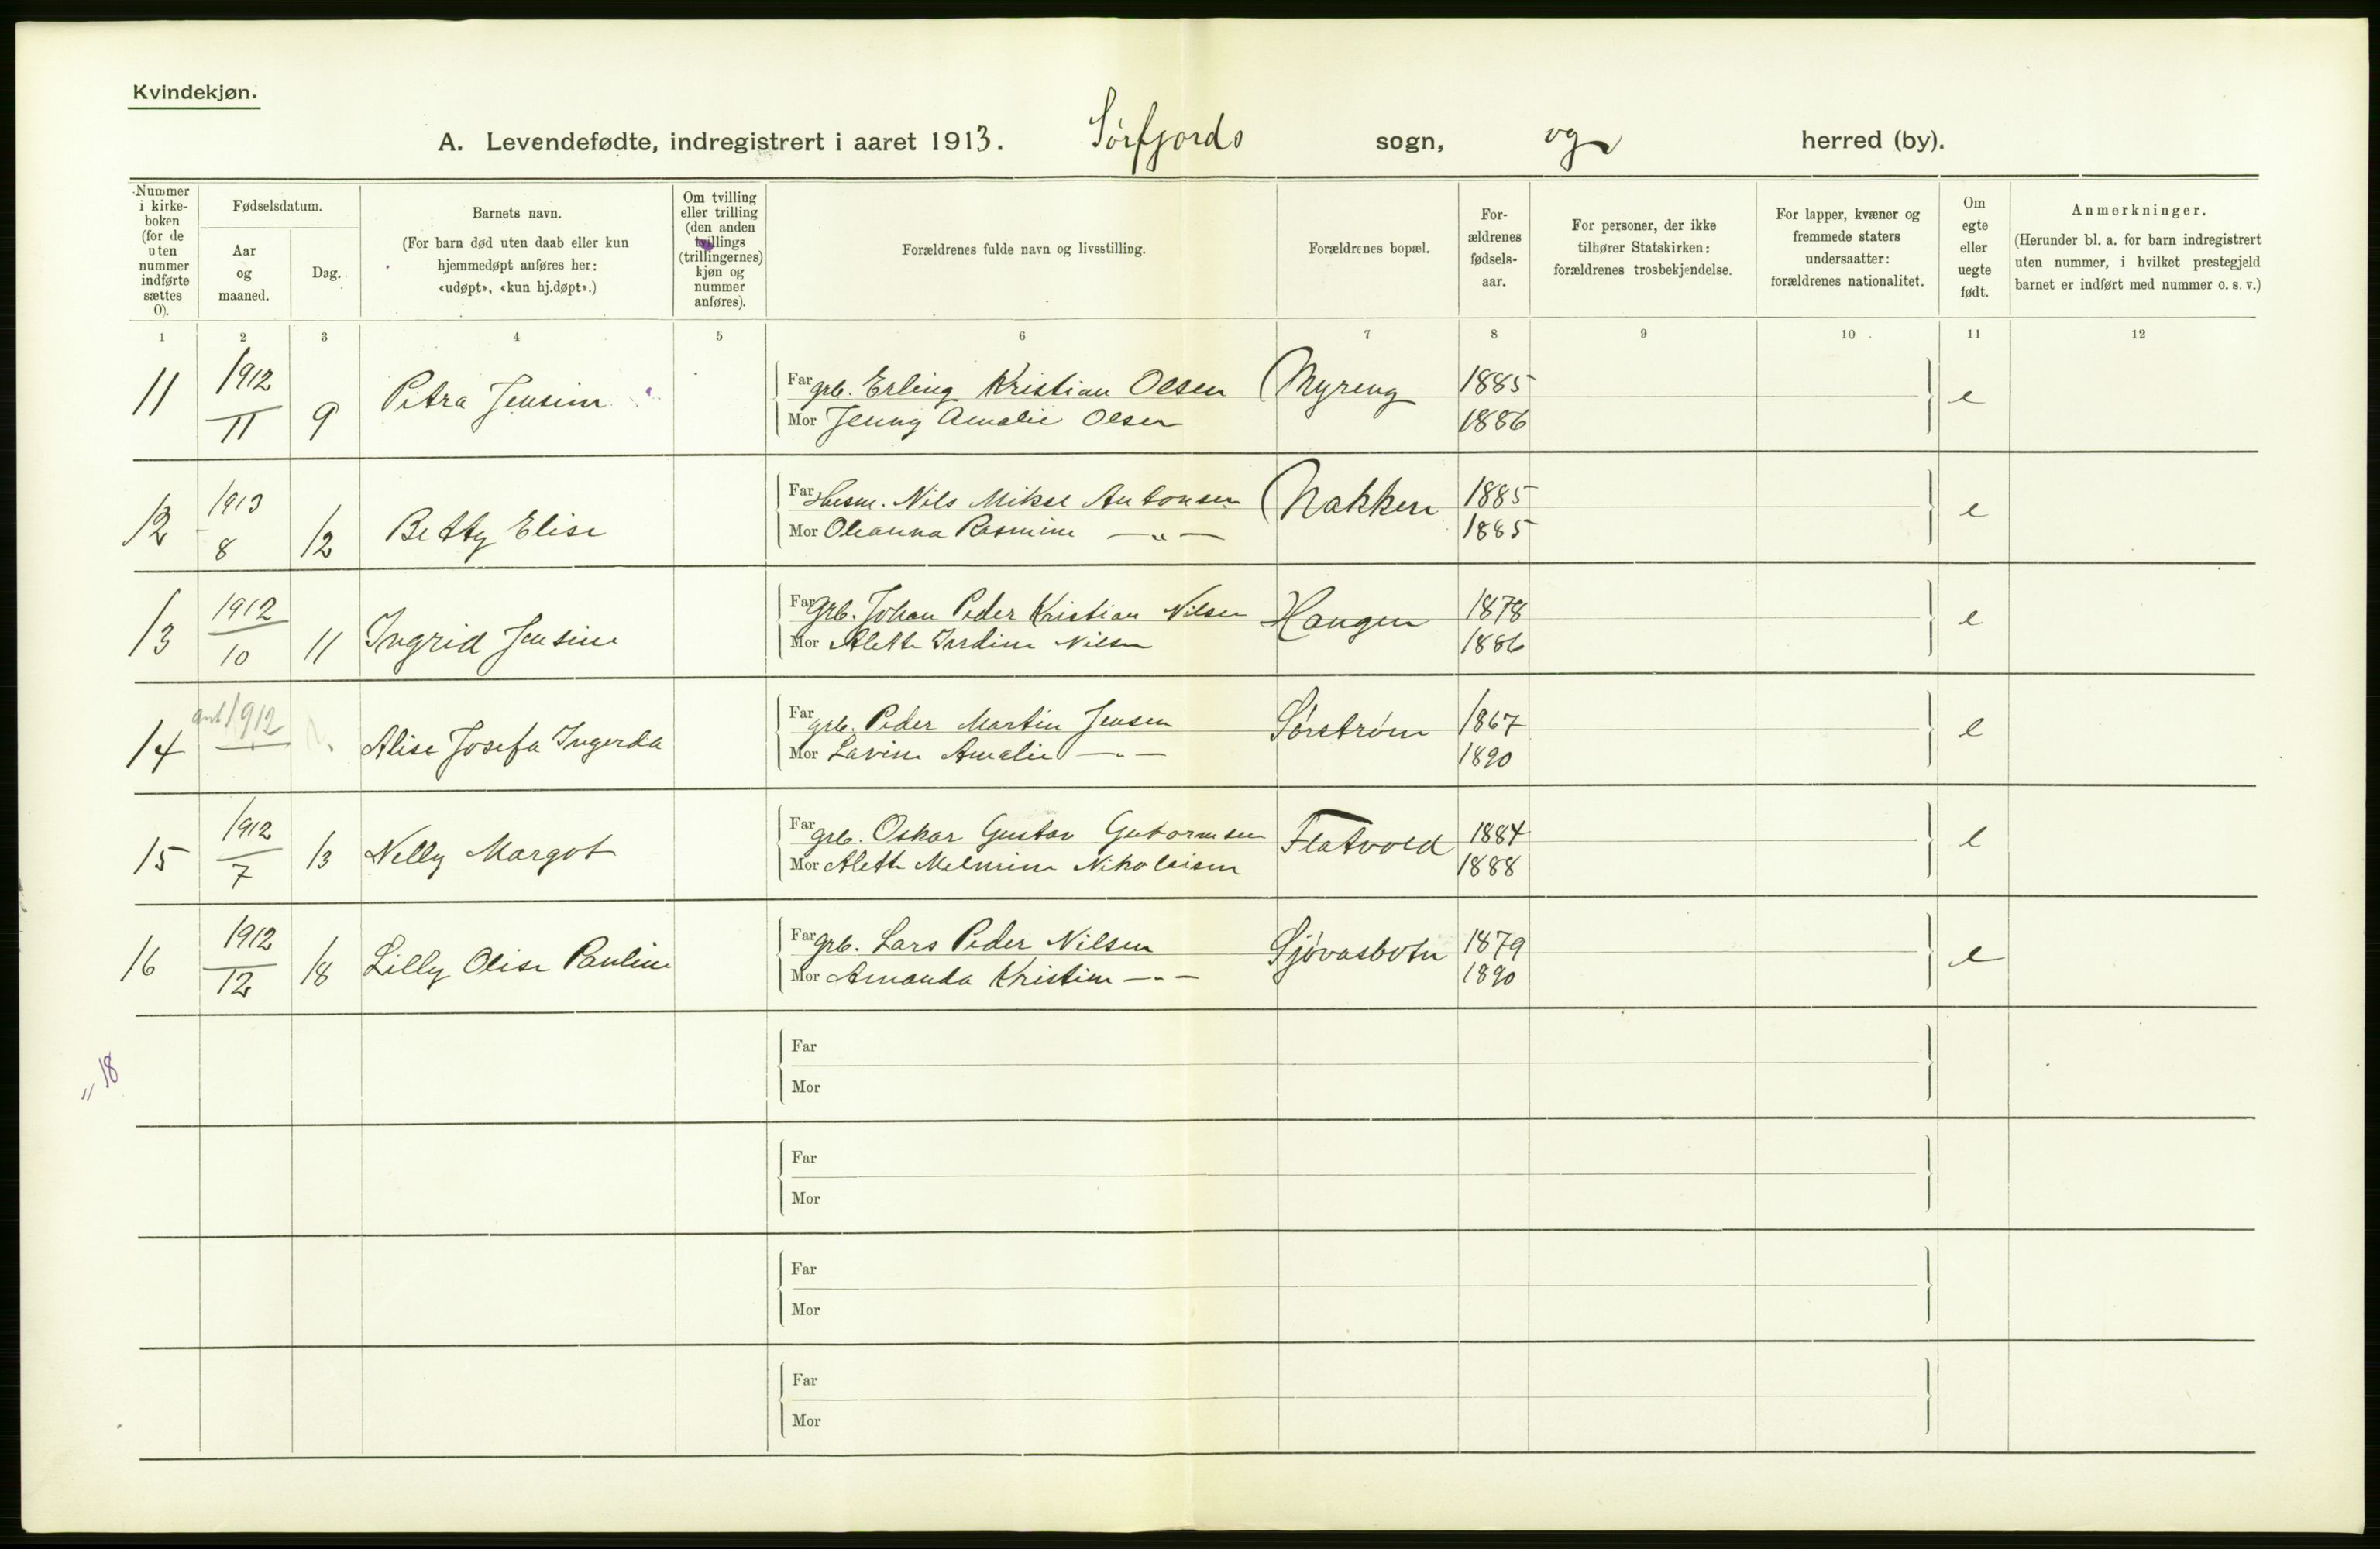 Kvindekjøn.
A. Levendefødte, indregistrert i aaret 1913. Sørfjords sogn, og herred (by).
Nummer i kirke-boken (for de uten nummer indførte sættes 0).
Fødselsdatum.
Aar og maaned.
Dag.
Barnets navn.
(For barn død uten daab eller kun hjemmedøpt anføres her: «udøpt», «kun hj.døpt».)
Om tvilling eller trilling (den anden tvillings (trillingernes) kjøn og nummer anføres).
Forældrenes fulde navn og livsstilling.
Forældrenes bopæl.
For-ældrenes fødsels-aar.
For personer, der ikke tilhører Statskirken: forældrenes trosbekjendelse.
For lapper, kvæner og fremmede staters undersaatter: forældrenes nationalitet.
Om egte eller uegte født.
Anmerkninger.
(Herunder bl. a. for barn indregistrert uten nummer, i hvilket prestegjeld barnet er indført med nummer o. s. v.)
1 2 3 4 5 6 7 8 9 10 11 12
11 1912 11 9 Petra Jensine Far grb. Erling Kristian Olsen Myreng 1885 e
Mor Jenny Amalie Olsen 1886
12 1913 8 12 Betty Elise Far Husm. Nils Mikal Antonsen Nakken 1885 e
Mor Oleanna Rasmine —„— 1885
13 1912 10 11 Ingrid Jensine Far Grb. Johan Peder Kristian Nilsen Haugen 1878 e
Mor Alette Nilsen 1886
14 1912 Alise Josefa Ingerda Far grb. Peder Martin Jensen Sørstrøm 1867 e
Mor Lavine Amalie —„— 1890
15 1912 7 13 Nelly Margot Far grb. Oskar Gustav Gutormsen Flatvold 1884 e
Mor Alette Nikolaisen 1888
16 1912 12 18 Lilly Olise Pauline Far grb. Lars Peder Nilsen Sjøvasbotn 1879 e
Mor Amanda Kristine —„— 1890
Far
„ 18
Mor
Far
Mor
Far
Mor
Far
Mor